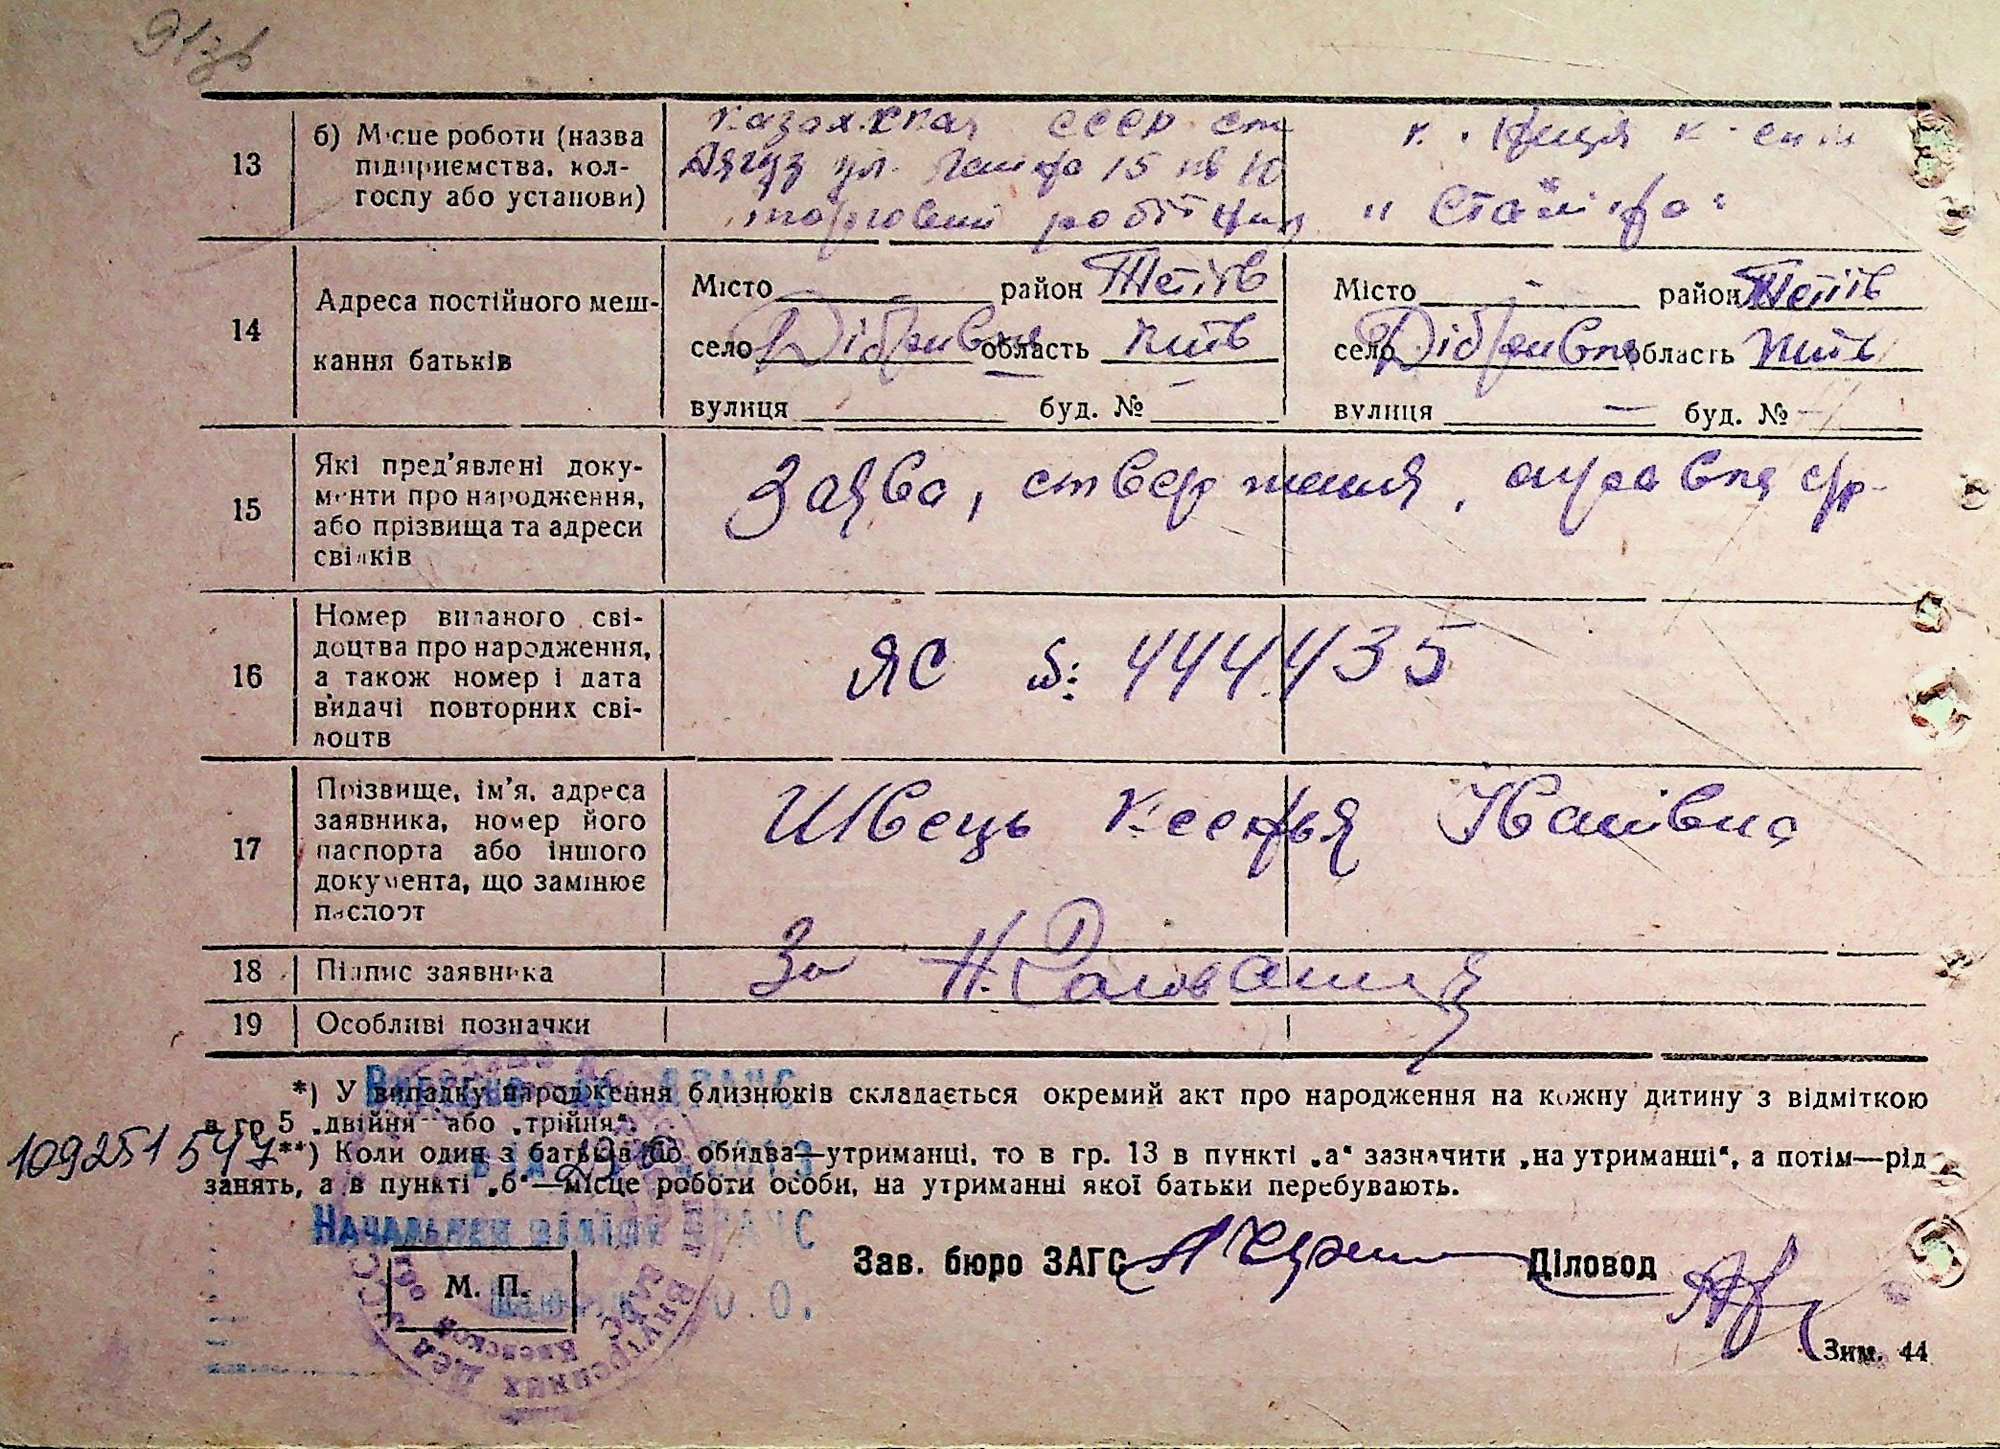 13
б) Місце роботи (назва
підприємства, кол-
госпу або установи)
Казахская СССР ст
Аягуз ул. 15 кв 10
торговий робітник
14
Адреса постійного меш-
кання батьків
Місто район Тетіїв
село Дібрівка область Київ
вулиця буд. №
Місто - район Тетіїв
село Дібрівка область Київ
вулиця — буд. №
15
Які пред'явлені доку-
менти про народження,
або прізвища та адреси
свідків
Заява, ствердження,
16
Номер виданого сві-
доцтва про народження,
а також номер і дата
видачі повторних сві-
доцтв
ЯС №: 444435
17
Прізвище, ім'я, адреса
заявника, номер його
паспорта або іншого
документа, що замінює
паспорт
Швець Ксенья Іванівна
18
Підпис заявника
За
19
Особливі позначки
*) У випадку народження близнюків складається окремий акт про народження на кожну дитину з відміткою
в гр 5 „двійня“ або „трійня“.
109251547
**) Коли один з батьків або обидва—утриманці, то в гр. 13 в пункті „а“ зазначити „на утриманці“, а потім—рід
занять, а в пункті „б“—місце роботи особи, на утриманні якої батьки перебувають.
М. П.
Зав. бюро ЗАГС
Діловод
Зим. 44